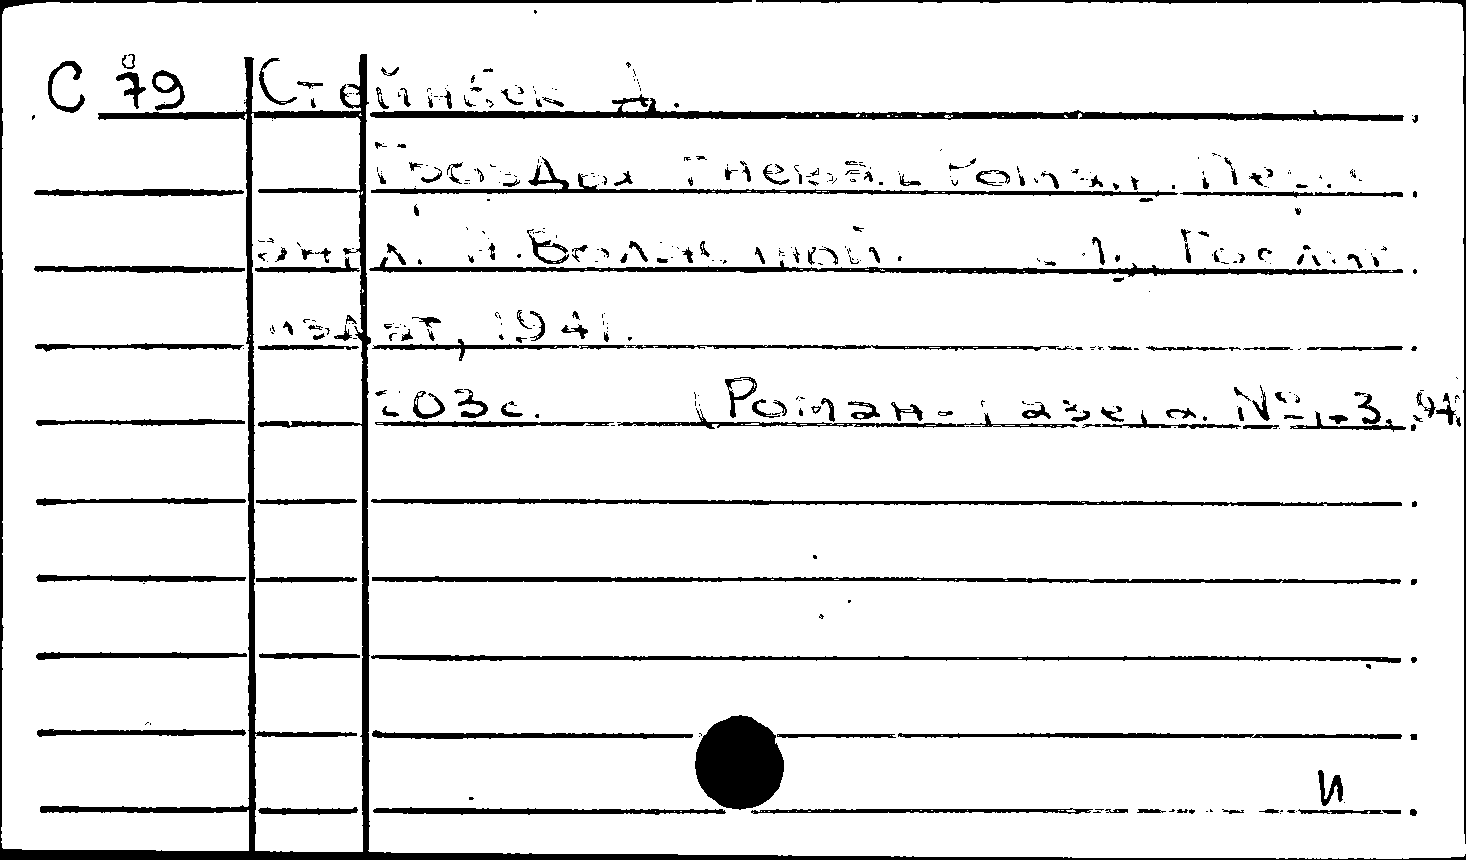 С 79 Стейнбек Д.
Гроздья гнева. Роман. Пер. с
англ. Н. Волжиной. - М., Гослит
издат, 1941.
203с. (Роман-газета. №1-3. 941
и